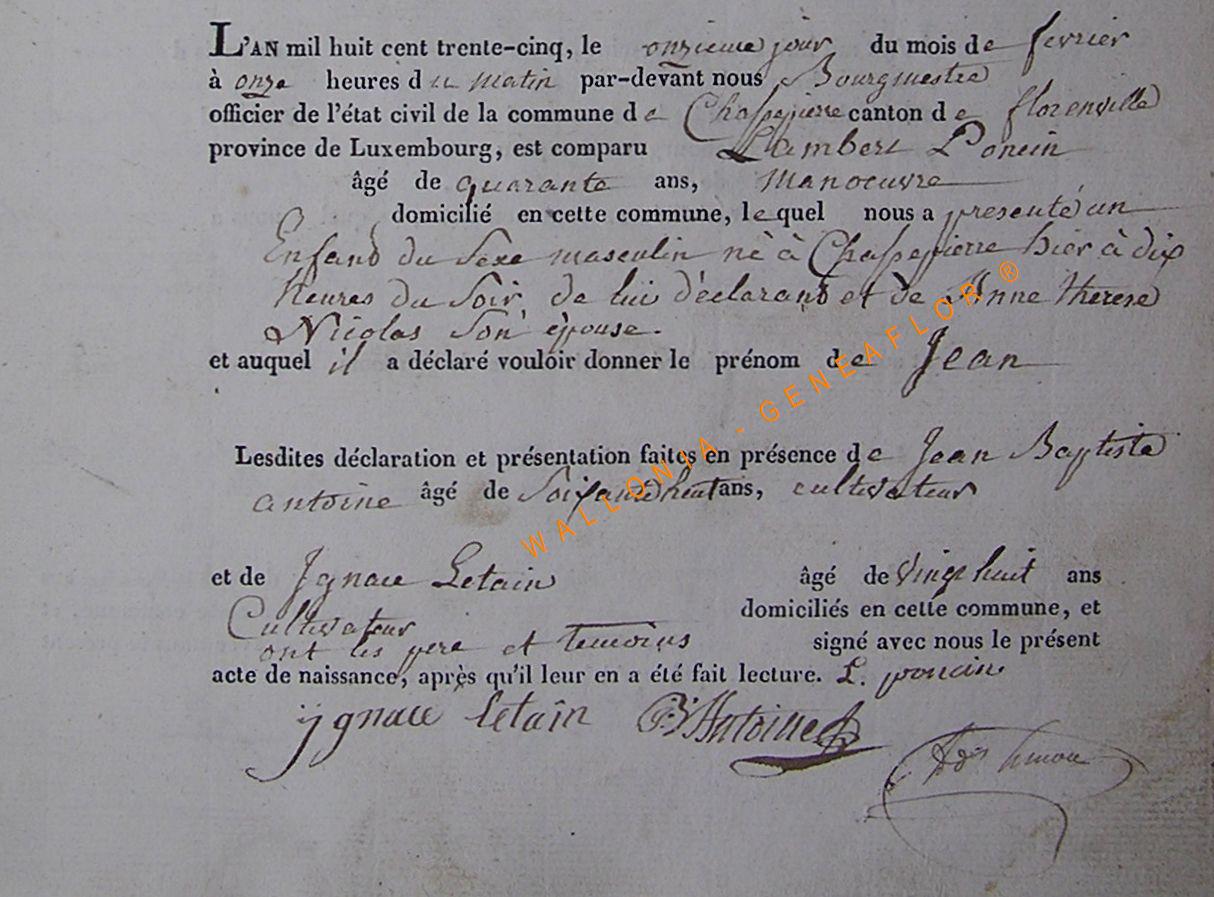 L'AN mil huit cent trente-cinq, le onzieme jour du mois de fevrier
à onze heures du matin par-devant nous Bourgmestre
officier de l'état civil de la commune de Chassepierre canton de florenville
province de Luxembourg, est comparu Lambert Poncin
âgé de quarante ans, manoeuvre
domicilié en cette commune, lequel nous a presenté un
Enfand du Sexe masculin né à Chassepierre hier à dix
heures du Soir, de lui déclarant et de Anne therese
Nicolas Son épouse.
et auquel il a déclaré vouloir donner le prénom de Jean
Lesdites déclaration et présentation faites en présence de Jean Baptiste
antoine âgé de ans, cultivateur
et de Ignace Letain âgé de vingt huit ans
Cultivateur domiciliés en cette commune, et
ont les pere et temoins signé avec nous le présent
acte de naissance, après qu'il leur en a été fait lecture. L. poncin
ignace letain B. Antoine
WALLONIA - GENEAFLOR ®